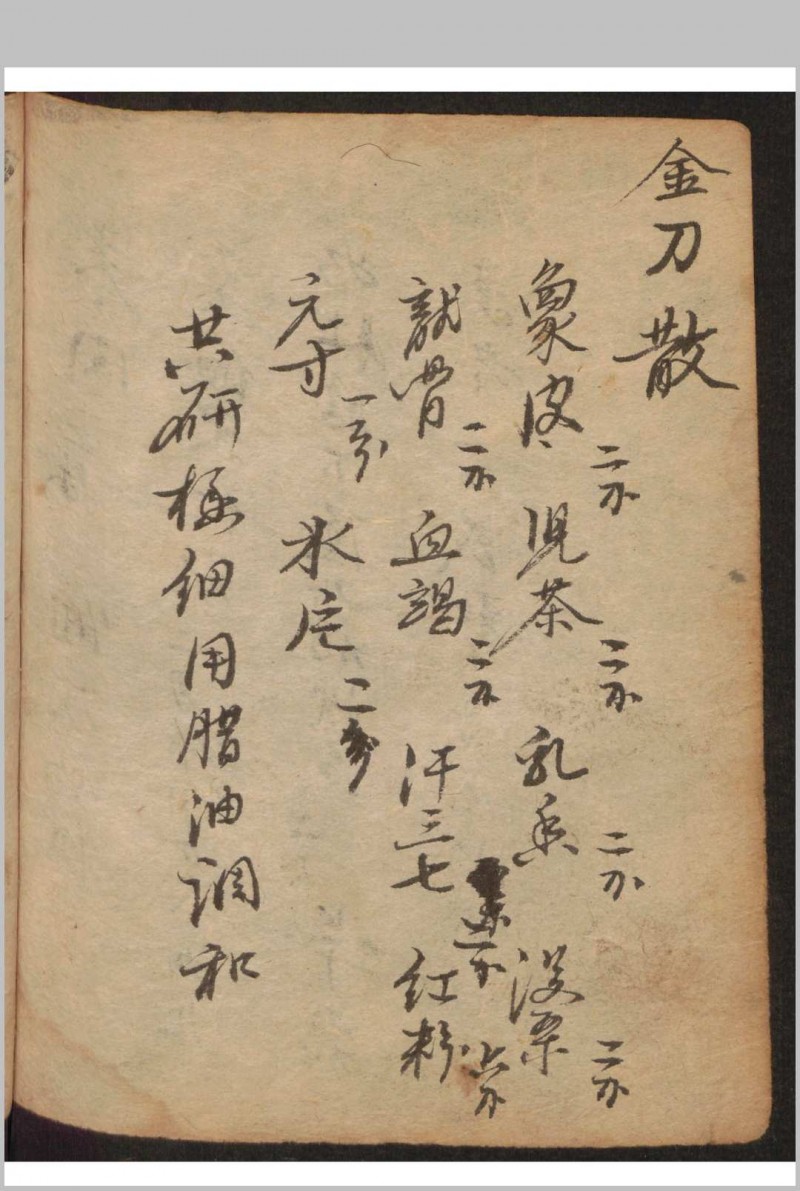 金刀散
象皮二不 児茶二不 乳香二不 没藥二不
龍骨二不 血竭二不 汗三七 二不 红粉
元寸一分 氷片二分
共研極细用腊油调和